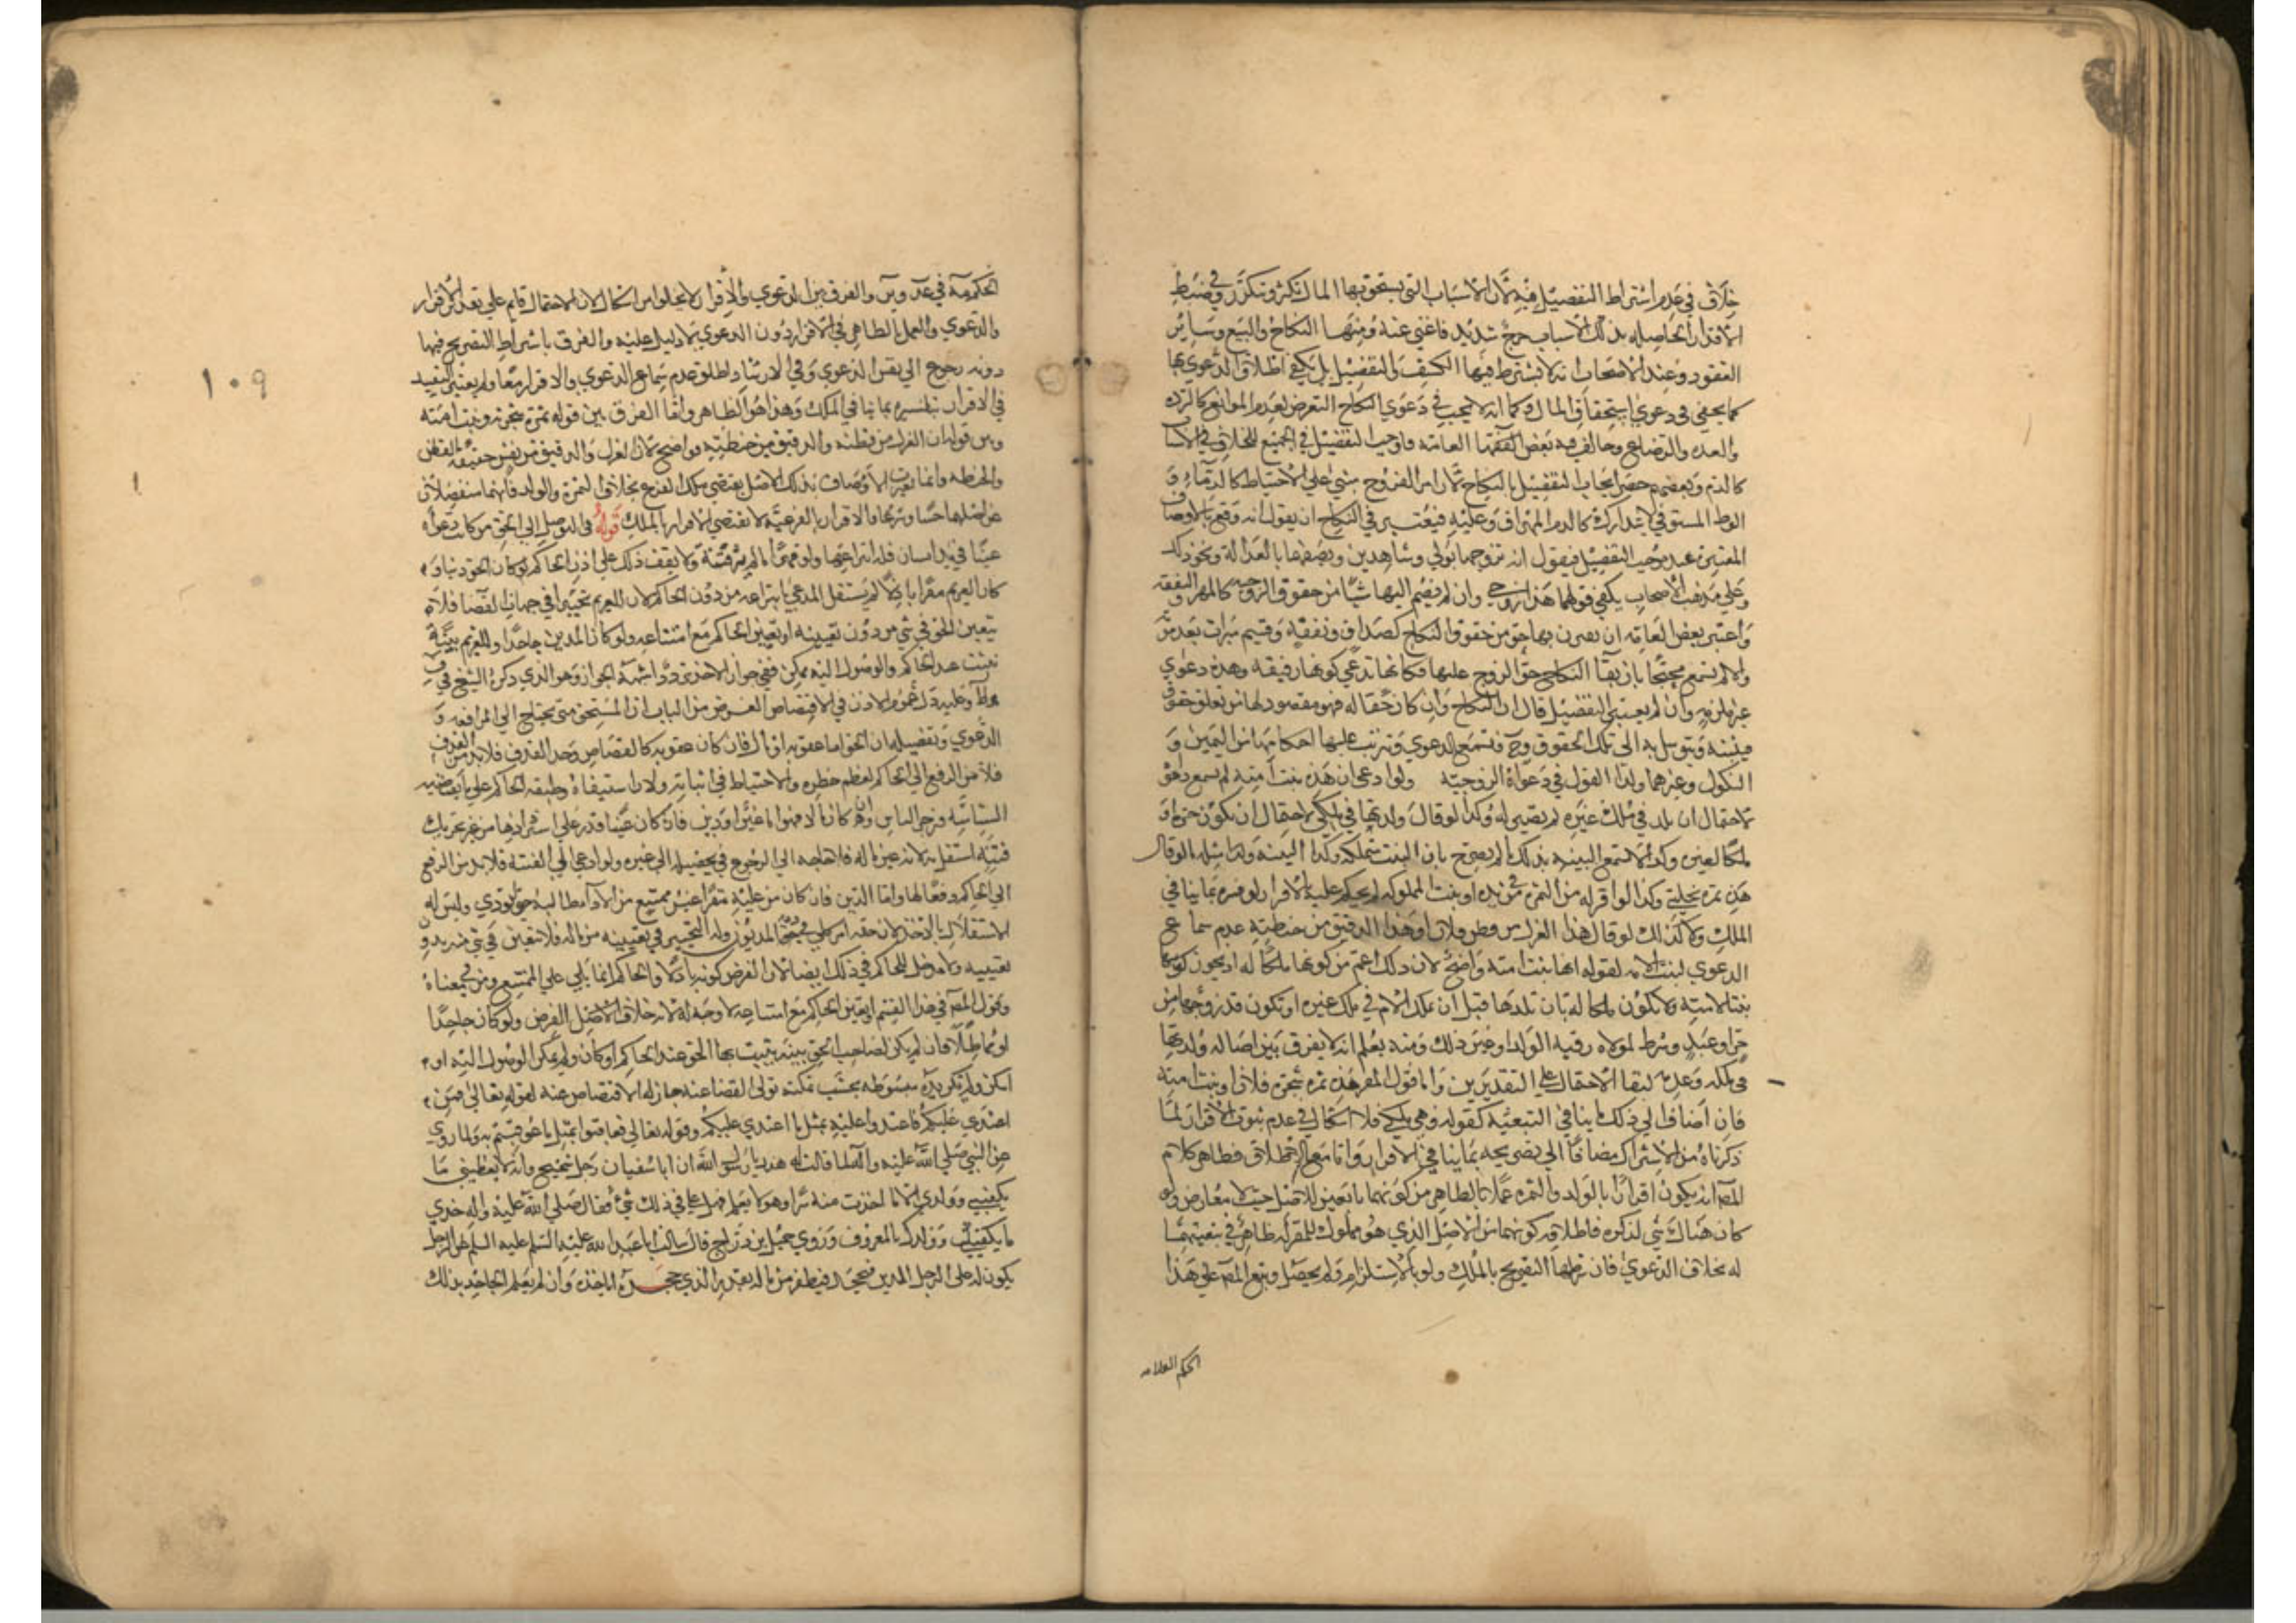 خلاف في عدم اشتراط التفصيل فيه لان الاسباب التي يستحق بها المال تكثر وتتكرر وفي ضبط
الاقدار الحاصله بذلك الاسباب حرج شديد فاغني عنه ومنها النكاح والبيع وسائر
العقود وعند الاصحاب انه لا يشترط فيها الكشف والتفصيل بل يكفي اطلاق الدعوي بها
كما يكفي في دعوي استحقاق المال وكما انه لا يجب في دعوي النكاح التعرض لعدم الموانع كالرده
والعده والرضاع وخالف فيه بعض الفقها العامه فاوجب التفصيل في الجميع للخلاف في الاسبا
كالدم وبعضهم خص ايجاب التفصيل بالنكاح لان امر الفروج مبني علي الاحتياط كالدماء و
الوط المستوفي لا يتدارك كالدم المهراق وعليه فيعتبر في النكاح ان يقول انه وقع بالاوصاف
المعتبرة عند موجب التفصيل فيقول انه تزوجها بولي وشاهدين ويصفها بالعدالة ونحو ذلك
وعلي مذهب الاصحاب يكفي قولها هذا زوجي وان لم يضم اليها شيا من حقوق الزوجيه كالمهر والنفقه
واعتبر بعض العامه ان يقرن بها حق من حقوق النكاح كصداق ونفقة وقسم ميراث بعد موته
والا لم تسمع محتجا بان بقا النكاح حق الزوج عليها فكانها تدعي كونها رقيقه وهذه دعوي
غير ملزمه وان لم يعتبر التفصيل قال ان النكاح وان كان حقا له فهو مقصود لها من تعلق حقوق
فيثبته وتتوسل به الي تلك الحقوق وح فتسمع الدعوي وترتب عليها احكامها من اليمين و
النكول وغيرهما ولذا القول في دعواه الزوجيه ولو ادعي ان هذه بنت امته لم تسمع دعوي
لاحتمال ان تلد في ملك غيره لم تصير له وكذا لو قال ولدتها في ملكي لاحتمال ان تكون حرة او
ملكا لغيره وكذا لا تسمع البينه بذلك ما لم يصرح بان البنت ملكه وكذا البينه ومثله لو قال
هذه ثمرة نخلتي وكذا لو اقر له من الثمره في يده او بنت المملوكه لم يحكم عليه بالاقرار لو فسره بما ينافي
الملك ولا كذلك لو قال هذا الغزل من قطن فلان او هذا الدقيق من حنطته عدم سماع
الدعوي لبنت الامه لقوله انها بنت امته واضح لان ذلك اعم من كونها ملكا له اذ يجوز كونها
بنتا لامته ولا تكون ملكا له بان تلدها قبل ان يملك الام في ملك غيره او تكون قد زوجها من
حر او عبد وشرط لمولاه رقية الولد او غير ذلك ومنه يعلم انه لا يفرق بين اضافه ولدتها
في ملكه وعدمه لبقا الاحتمال علي التقديرين واما قول المقر هذه ثمرة شجرة فلان او بنت امته
فان اضاف الي ذلك ما ينافي التبعية كقوله وهي ملكي فلا اشكال في عدم ثبوت الاقرار لما
ذكرناه من الاشتراك مضافا الي تصريحه بما ينافي الاقرار واما مع الاطلاق فظاهر كلام
المصـ انه يكون اقرارا بالولد والثمره عملا بالظاهر من كونهما تابعين للاصل حيث لا معارض ولو
كان هناك شي لذكره فاطلاقه كونهما من الاصل الذي هو مملوك للمقر له ظاهر في تبعيتهما
له بخلاف الدعوي فان شرطها التصريح بالملك ولو بالاستلزام ولم يحصل وتبع المصـ علي هذا
الحكم العلامه
الحكم فيه في عد وير والفرق بين الدعوي والاقرار لا يخلوا من اشكال لان الاحتمال قايم علي تقدير الاقرار
والدعوي والعمل بالظاهر في الاقرار دون الدعوي لا دليل عليه والفرق باشتراط التصريح فيها
دونه رجوع الي نفس الدعوي وفي الارشاد اطلق عدم سماع الدعوي والاقرار معا ولم يعتبر التقييد
في الاقرار بتفسيره بما ينافي الملك وهذا هو الظاهر واما الفرق بين قوله ثمرة شجرته وبنت امته
وبين قوله ان الغزل من قطنه والدقيق من حنطته فواضح لان الغزل والدقيق من نفس حقيقة القطن
والحنطه وانما تغيرت الاوصاف فذلك الاصل يقتضي ملك الفرع بخلاف الثمرة والولد فانهما منفصلان
عن اصلهما حسا وشرعا والاقرار بالفرعية لا يقتضي الاقرار بالملك قوله في التوصل الي الحق من كانت دعواه
عينا في يد انسان فله انتزاعها ولو قهرا ما لم يثر فتنة ولا يقف ذلك علي اذن الحاكم لو كان الحق دينا و
كان الغريم مقرا باذلا لم يستقل المدعي بانتزاعه من دون الحاكم لان للغريم تخييرا في جهات القضا فلا
يتعين الحق في شي من دون تعيينه او تعيين الحاكم مع امتناعه ولو كان المدين جاحدا وللغريم بينة
تثبت عند الحاكم والوصول اليه ممكن ففي جواز الاخذ تردد اشبهه الجواز وهو الذي ذكره الشيخ في ف
وط وعليه دل عموم الاذن في الاقتصاص الغرض من الباب ان المستحق متي يحتاج الي المرافعه و
الدعوي وتفصيله ان الحق اما عقوبه او مال فان كان عقوبه كالقصاص وحد القذف
فلا بد من الرفع الي الحاكم لعظم خطره والاحتياط في اثباته ولان استيفاءه وظيفه الحاكم علي ما يقتضيه
السياسه وزجر الناس وان كان مالا فهو اما عين او دين فان كان عينا قدر علي استردادها من غير تحريك
فتنة استقل به لانه عين ماله فلا حاجه الي الرجوع في تحصيله الي غيره ولو ادي الي الفتنه فلا بد من الرفع
الي الحاكم دفعا لها واما الدين فان كان من عليه مقرا غير ممتنع من الادا طالبه حتي يودي وليس له
الاستقلال بالاخذ لان حقه امر كلي في ذمة المديون وله التخيير في تعيينه من ماله فلا يتعين في شي منه بدون
تعيينه ولا مدخل للحاكم في ذلك ايضا لان الفرض كونه باذلا والحاكم انما يلي علي الممتنع ومن في معناه
وقول المصـ في هذا القسم او تعيين الحاكم مع امتناعه لا وجه له لانه خلاف الفرض ولو كان جاحدا
او مماطلا فان لم يكن لصاحب الحق بينه يثبت بها الحق عند الحاكم او كان ولم يمكن الوصول اليه او
امكن ولم تكن يده مبسوطه بحيث يمكنه تولي القضا عنه جاز له الاقتصاص عنه لقوله تعالي فمن
اعتدي عليكم فاعتدوا عليه بمثل ما اعتدي عليكم وقوله تعالي فعاقبوا بمثل ما عوقبتم به ولما روي
عن النبي صلي الله عليه واله لما قالت له هند يا رسول الله ان ابا سفيان رجل شحيح وانه لا يعطيني ما
يكفيني وولدي الا ما اخذت منه سرا وهو لا يعلم فهل علي في ذلك شي فقال صلي الله عليه واله خذي
ما يكفيك وولدك بالمعروف وروي جميل بن دراج قال سالت ابا عبد الله عليه السلم عن الرجل
يكون له علي الرجل الدين فيجحده فيظفر من ماله بقدر الذي جحده اياخذه وان لم يعلم الجاحد بذلك
١٠٩